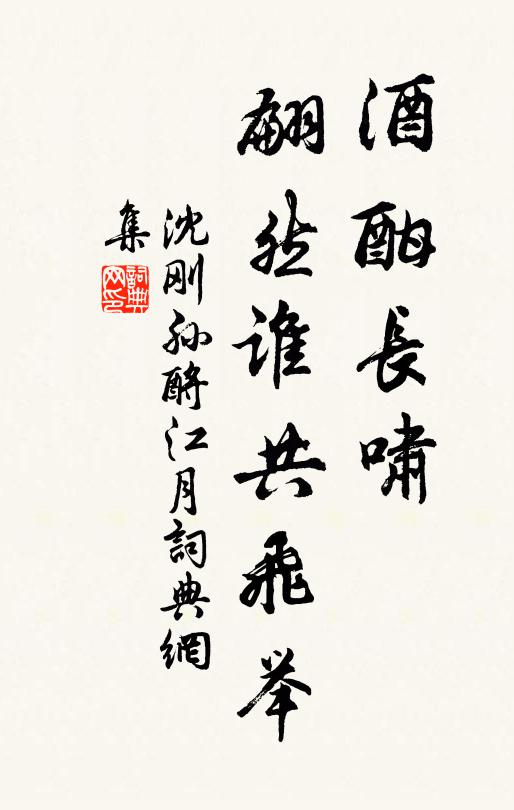 酒酣長嘯
翩然谁共飛举
沈刚孙酹江月詞典網
集
詞典網印